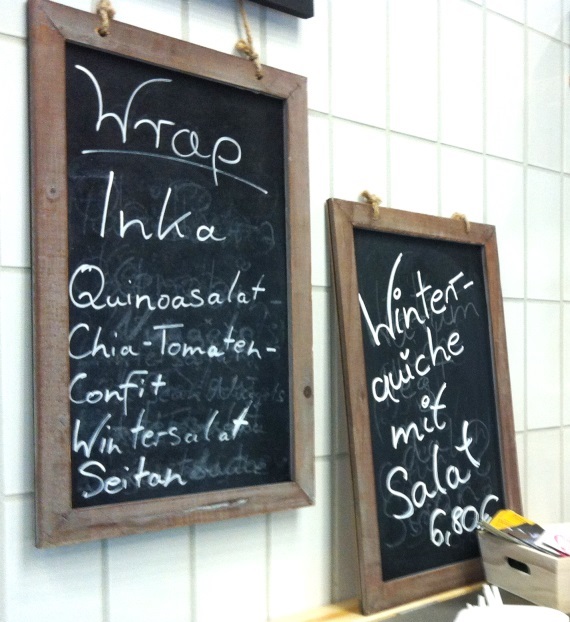 Wrap
Inka
Quinoasalat
Chia-Tomaten-
Confit
Wintersalat
Seitan
Winter-
quiche
mit
Salat
6,80€